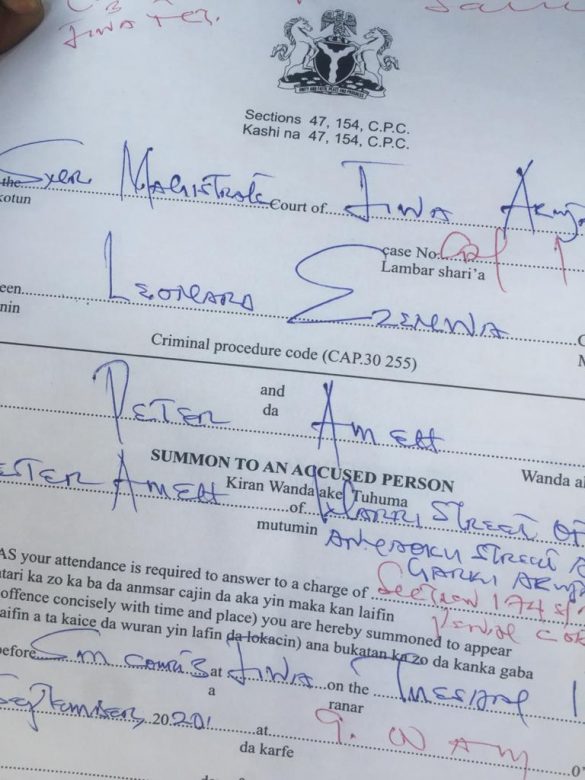 JIWA
Sections 47, 154, C.P.C.
Kashi na 47, 154, C.P.C.
the Magistrate Court of JIWA Abuja
kotun
case No.
Lambar shari'a
een LEONARD EZENWA
nin
Criminal procedure code (CAP.30 255)
and
da
PETER AMEH
SUMMON TO AN ACCUSED PERSON
Wanda
Kiran Wanda ake Tuhuma
AMEH of Street
mutumin
STREET
GARKI ABUJA
AS your attendance is required to answer to a charge of Section 174
atari ka zo ka ba da anmsar cajin da aka yin maka kan laifin
offence concisely with time and place) you are hereby summoned to appear
laifin a ta kaice da wuran yin lafin da lokacin) ana bukatan ka zo da kanka gaba
before at JIWA on the TUESDAY 1
a ranar
September, 2020 at 9.00 AM
da karfe